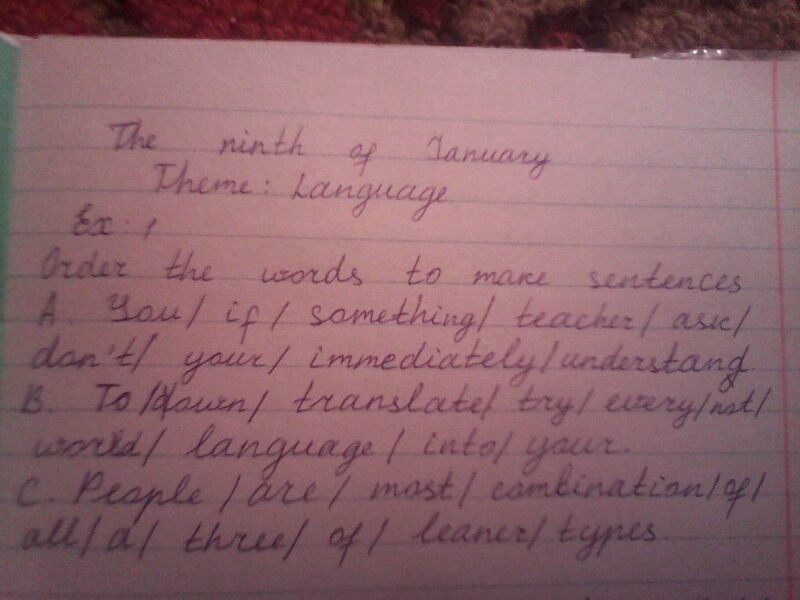 The ninth of January
Theme: Language
Ex: 1
Order the words to make sentences
A. You/ if/ something/ teacher/ ask/
don't/ your/ immediately/understang
B. To/down/ translate/ try/ every/not/
world/ language/ into/ your.
C. People/ are/ most/ combination/of/
all/a/ three/ of/ leaner/ types.